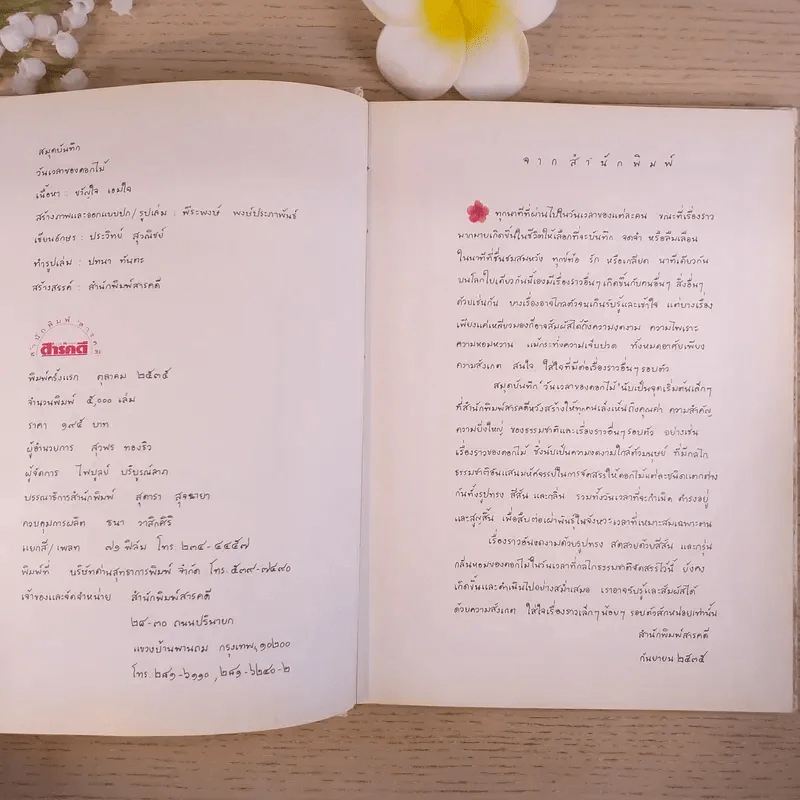 สมุดบันทึก
วันเวลาของดอกไม้
เนื้อหา : ขวัญใจ เอมใจ
สร้างภาพและออกแบบปก/รูปเล่ม : พีระพงษ์ พงษ์ประภาพันธ์
เขียนอักษร : ประวิทย์ สุวณิชย์
ทำรูปเล่ม : ปทนา ทันตะ
สร้างสรรค์ : สำนักพิมพ์สารคดี
สำนักพิมพ์ สารคดี
สารคดี
พิมพ์ครั้งแรก ตุลาคม ๒๕๓๕
จำนวนพิมพ์ ๕,๐๐๐ เล่ม
ราคา ๑๙๕ บาท
ผู้อำนวยการ สุวพร ทองธิว
ผู้จัดการ ไพบูลย์ บริบูรณ์ลาภ
บรรณาธิการสำนักพิมพ์ สุดารา สุจฉายา
ควบคุมการผลิต ธนา วาสิกศิริ
แยกสี/เพลท ๗๑ ฟิล์ม โทร ๒๓๔-๔๔๕๗
พิมพ์ที่ บริษัทด่านสุทธาการพิมพ์ จำกัด โทร.๕๓๙-๗๔๙๐
เจ้าของและจัดจำหน่าย สำนักพิมพ์สารคดี
๒๘-๓๐ ถนนปรินายก
แขวงบ้านพานถม กรุงเทพฯ ๑๐๒๐๐
โทร. ๒๘๑-๖๑๑๐ , ๒๘๑-๖๒๔๐-๒
จากสำนักพิมพ์
ทุกนาทีที่ผ่านไปในวันเวลาของแต่ละคน ขณะที่เรื่องราว
มากมายเกิดขึ้นในชีวิตให้เลือกที่จะบันทึก จดจำ หรือลืมเลือน
ในนาทีที่ชื่นชมสมหวัง ทุกข์ท้อ รัก หรือเกลียด นาทีเดียวกัน
บนโลกใบเดียวกันนี้เองมีเรื่องราวอื่นๆ เกิดขึ้นกับคนอื่นๆ สิ่งอื่นๆ
ด้วยเช่นกัน บางเรื่องอาจไกลตัวจนเกินรับรู้และเข้าใจ แต่บางเรื่อง
เพียงแค่เหลียวมองก็อาจสัมผัสได้ถึงความงดงาม ความไพเราะ
ความหอมหวาน แม้กระทั่งความเจ็บปวด ทั้งหมดอาศัยเพียง
ความสังเกต สนใจ ใส่ใจที่มีต่อเรื่องราวอื่นๆ รอบตัว
สมุดบันทึก'วันเวลาของดอกไม้'นับเป็นจุดเริ่มต้นเล็กๆ
ที่สำนักพิมพ์สารคดีหวังสร้างให้ทุกคนเล็งเห็นถึงคุณค่า ความสำคัญ
ความยิ่งใหญ่ ของธรรมชาติและเรื่องราวอื่นๆ รอบตัว อย่างเช่น
เรื่องราวของดอกไม้ ซึ่งนับเป็นความงดงามใกล้ตัวมนุษย์ ที่มีกลไก
ธรรมชาติอันแสนมหัศจรรย์ในการจัดสรรให้ดอกไม้แต่ละชนิดแตกต่าง
กันทั้งรูปทรง สีสัน และกลิ่น รวมทั้งวันเวลาที่จะกำเนิด ดำรงอยู่
และสูญสิ้น เพื่อสืบต่อเผ่าพันธุ์ในจังหวะเวลาที่เหมาะสมเฉพาะตน
เรื่องราวอันงดงามด้วยรูปทรง สดสวยด้วยสีสัน และกรุ่น
กลิ่นหอมของดอกไม้ในวันเวลาที่กลไกธรรมชาติจัดสรรไว้นี้ ยังคง
เกิดขึ้นและดำเนินไปอย่างสม่ำเสมอ เราอาจรับรู้และสัมผัสได้
ด้วยความสังเกต ใส่ใจเรื่องราวเล็กๆ น้อยๆ รอบตัวสักหน่อยเท่านั้น
สำนักพิมพ์สารคดี
กันยายน ๒๕๓๕